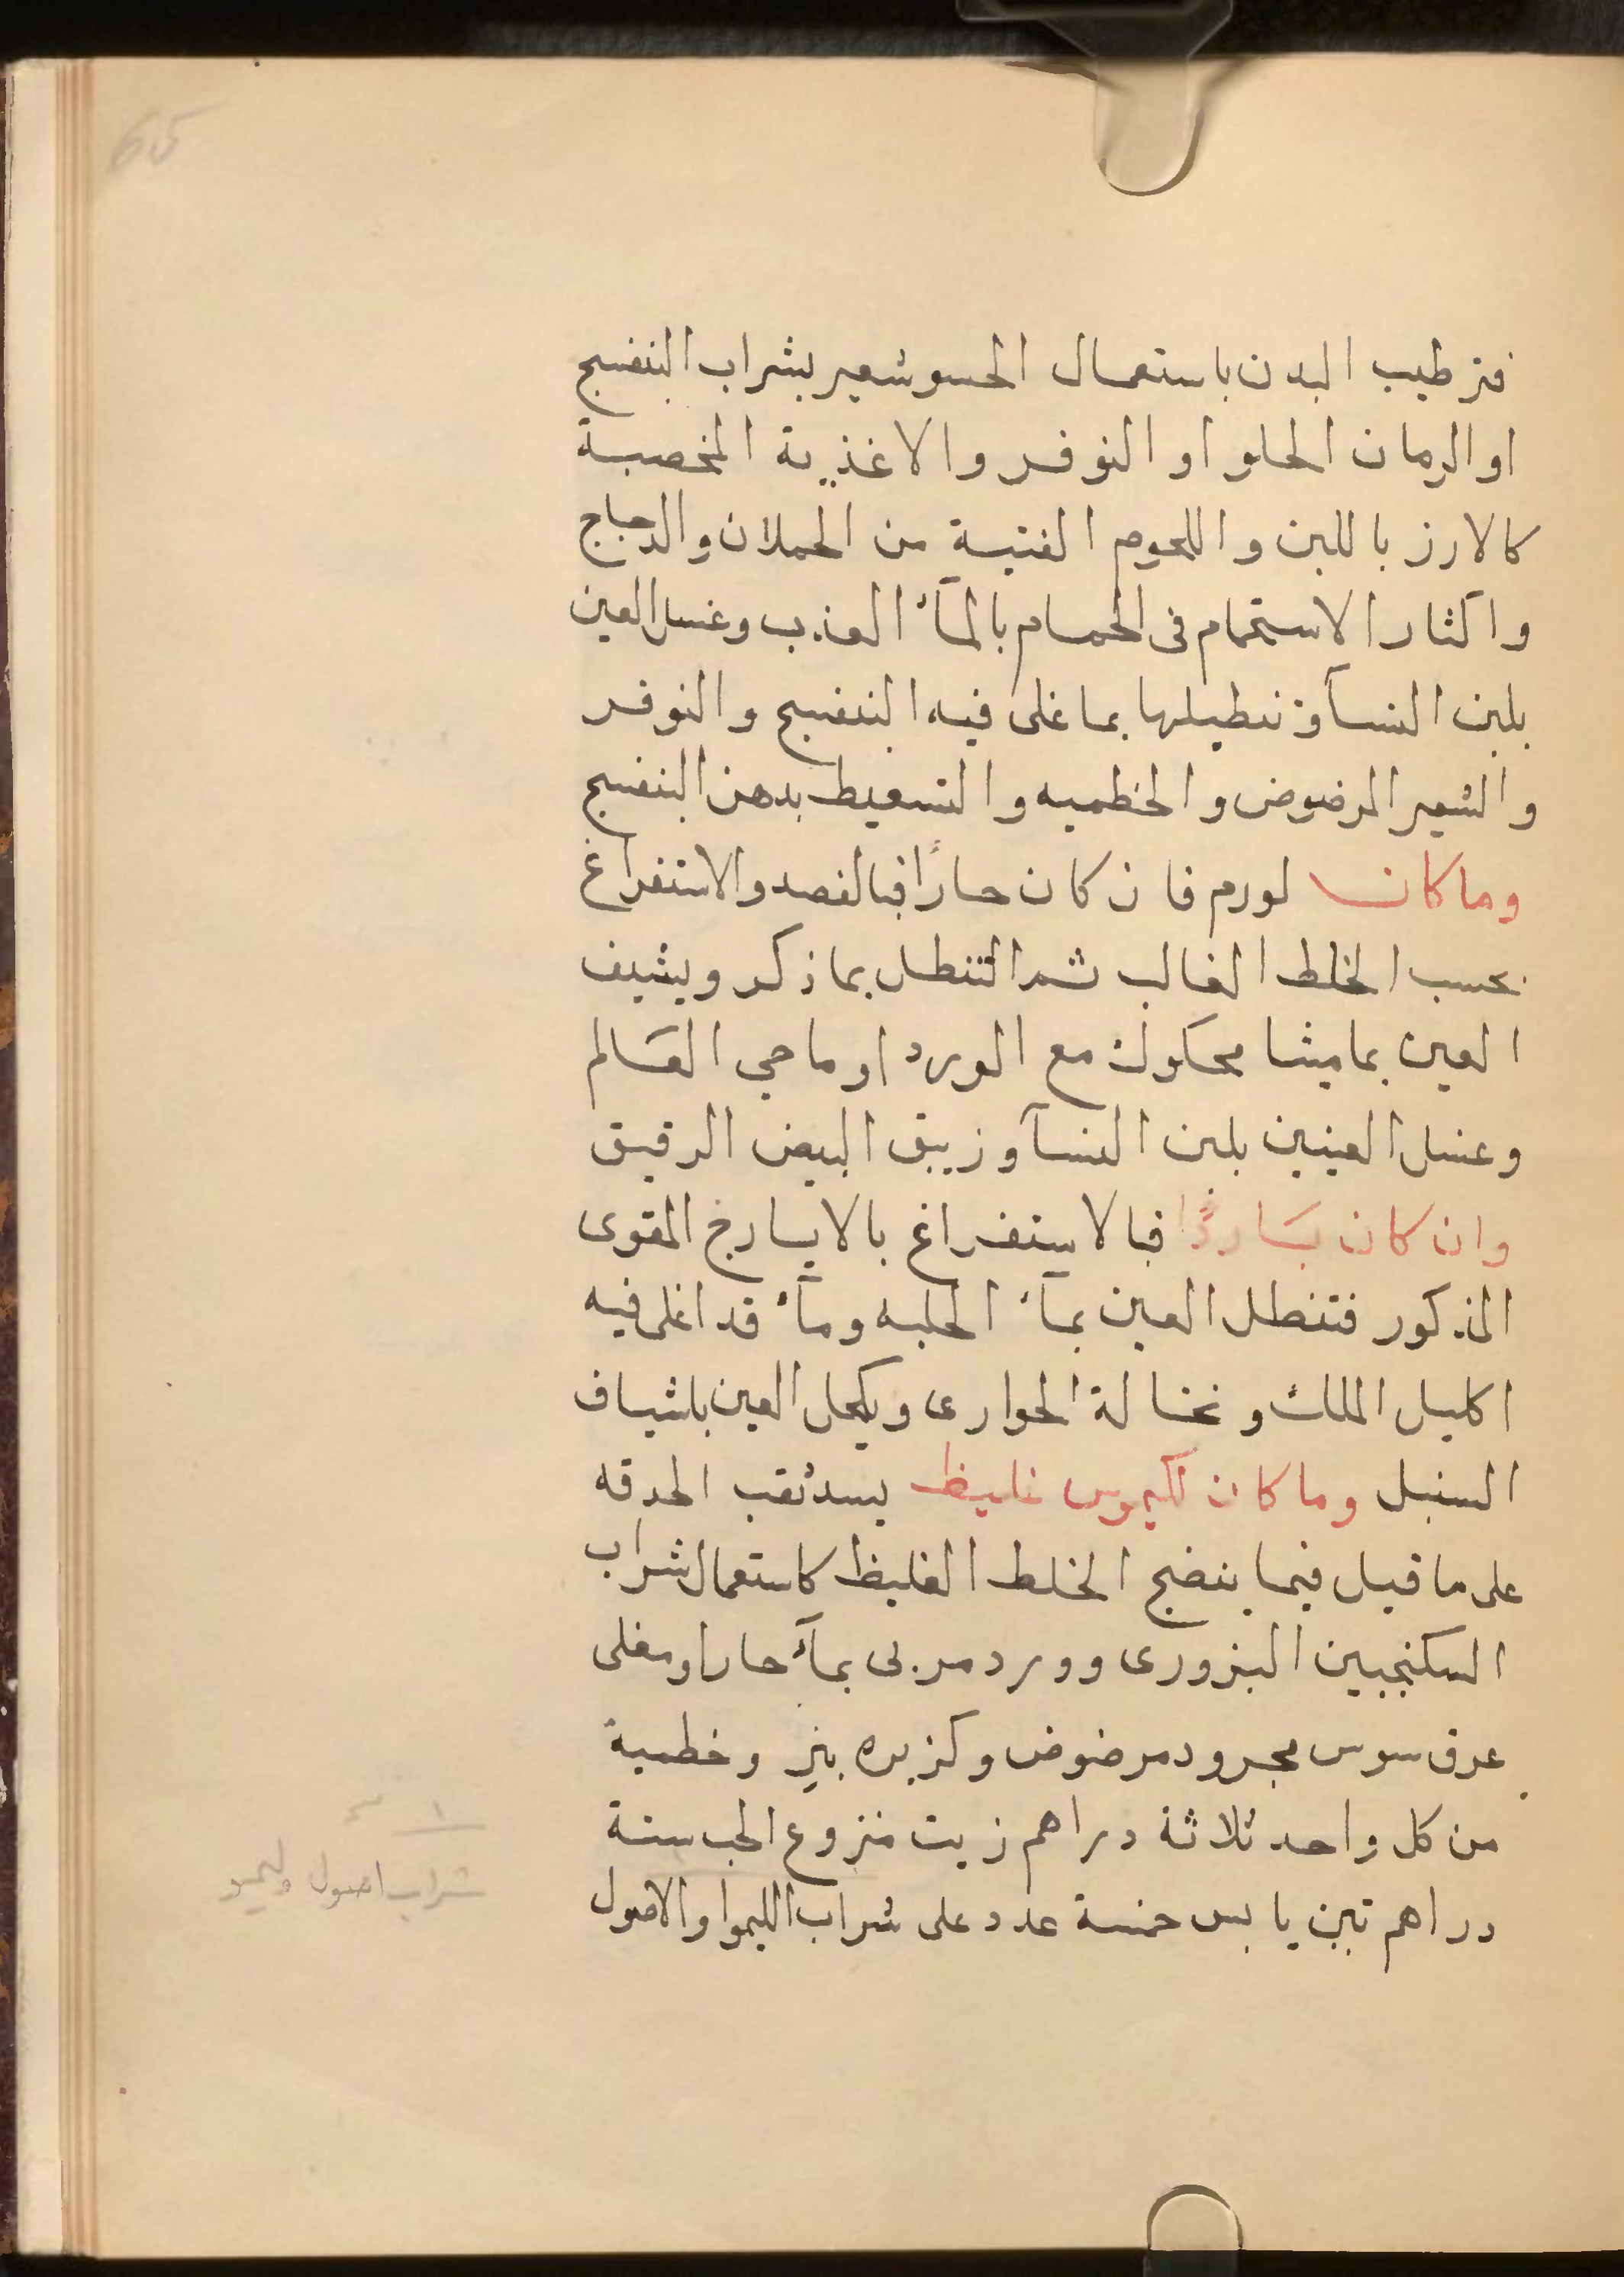 65
فترطيب البدن باستعمال الحسو شعير بشراب البنفسج
او الرمان الحلو او النوفر والاغذية المخصبة
كالارز باللبن واللحوم الفتية من الحملان والدجاج
واكثار الاستحمام فى الحمام بالمآء العذب وغسل العين
بلبن النسآ وتنطيلها بما غلى فيه البنفسج والنوفر
والشعير المرضوض والخطميه والتسعيط بدهن البنفسج
وما كان لورم فان كان حارًا فبالفصد والاستفراغ
بحسب الخلط الغالب ثم التنطل بما ذكر ويشيف
العين بماميثا محكوك مع الورد او ما حي العالم
وغسل العينين بلبن النسآ وزيبق البيض الرقيق
وان كان باردًا فبالاستفراغ بالايارخ المقوى
المذكور فتنطل العين بمآء الحلبه ومآء قد اغلى فيه
اكليل الملك ونخالة الحوارى ويكحل العين باشياف
السنبل وما كان لكيموس غليظ يسد ثقب الحدقه
على ما قيل فيما ينضج الخلط الغليظ كاستعمال شراب
السكنجبين البزورى وورد مربى بمآء حار او مغلى
عرق سوس مجرود مرضوض وكزبره بئر وخطمية
من كل واحد ثلاثة دراهم زيت منزوع الحب ستة
دراهم تين يابس خمسة عدد على شراب الليموا والاصول
شراب اصول وليمو